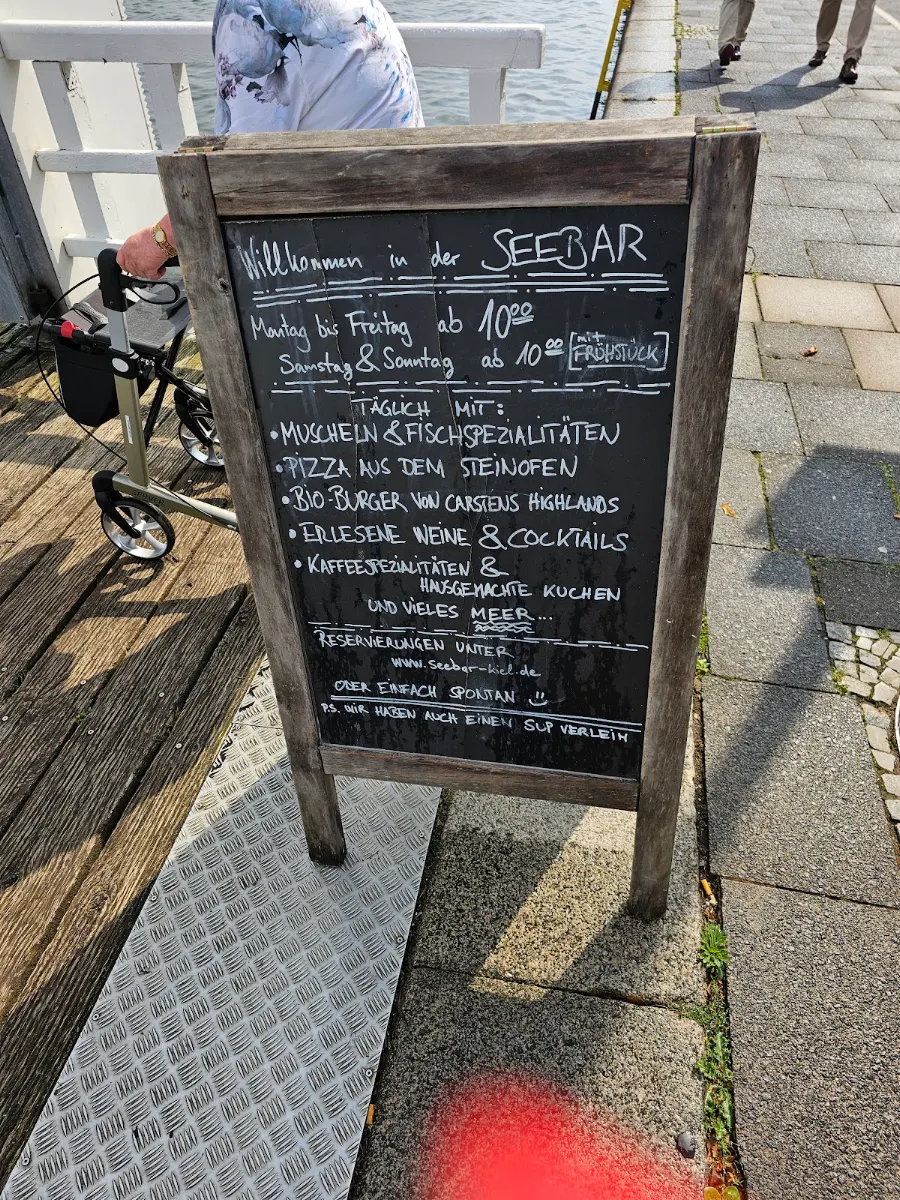 Willkommen in der SEEBAR
Montag bis Freitag ab 10⁰⁰
Samstag & Sonntag ab 10⁰⁰ [mit FRÜHSTÜCK]
TÄGLICH MIT:
• MUSCHELN & FISCHSPEZIALITÄTEN
• PIZZA AUS DEM STEINOFEN
• BIO-BURGER VON CARSTENS HIGHLANDS
• ERLESENE WEINE & COCKTAILS
• KAFFEESPEZIALITÄTEN &
HAUSGEMACHTE KUCHEN
UND VIELES MEER...
RESERVIERUNGEN UNTER
www.seebar-kiel.de
ODER EINFACH SPONTAN :)
P.S. WIR HABEN AUCH EINEN SUP VERLEIH